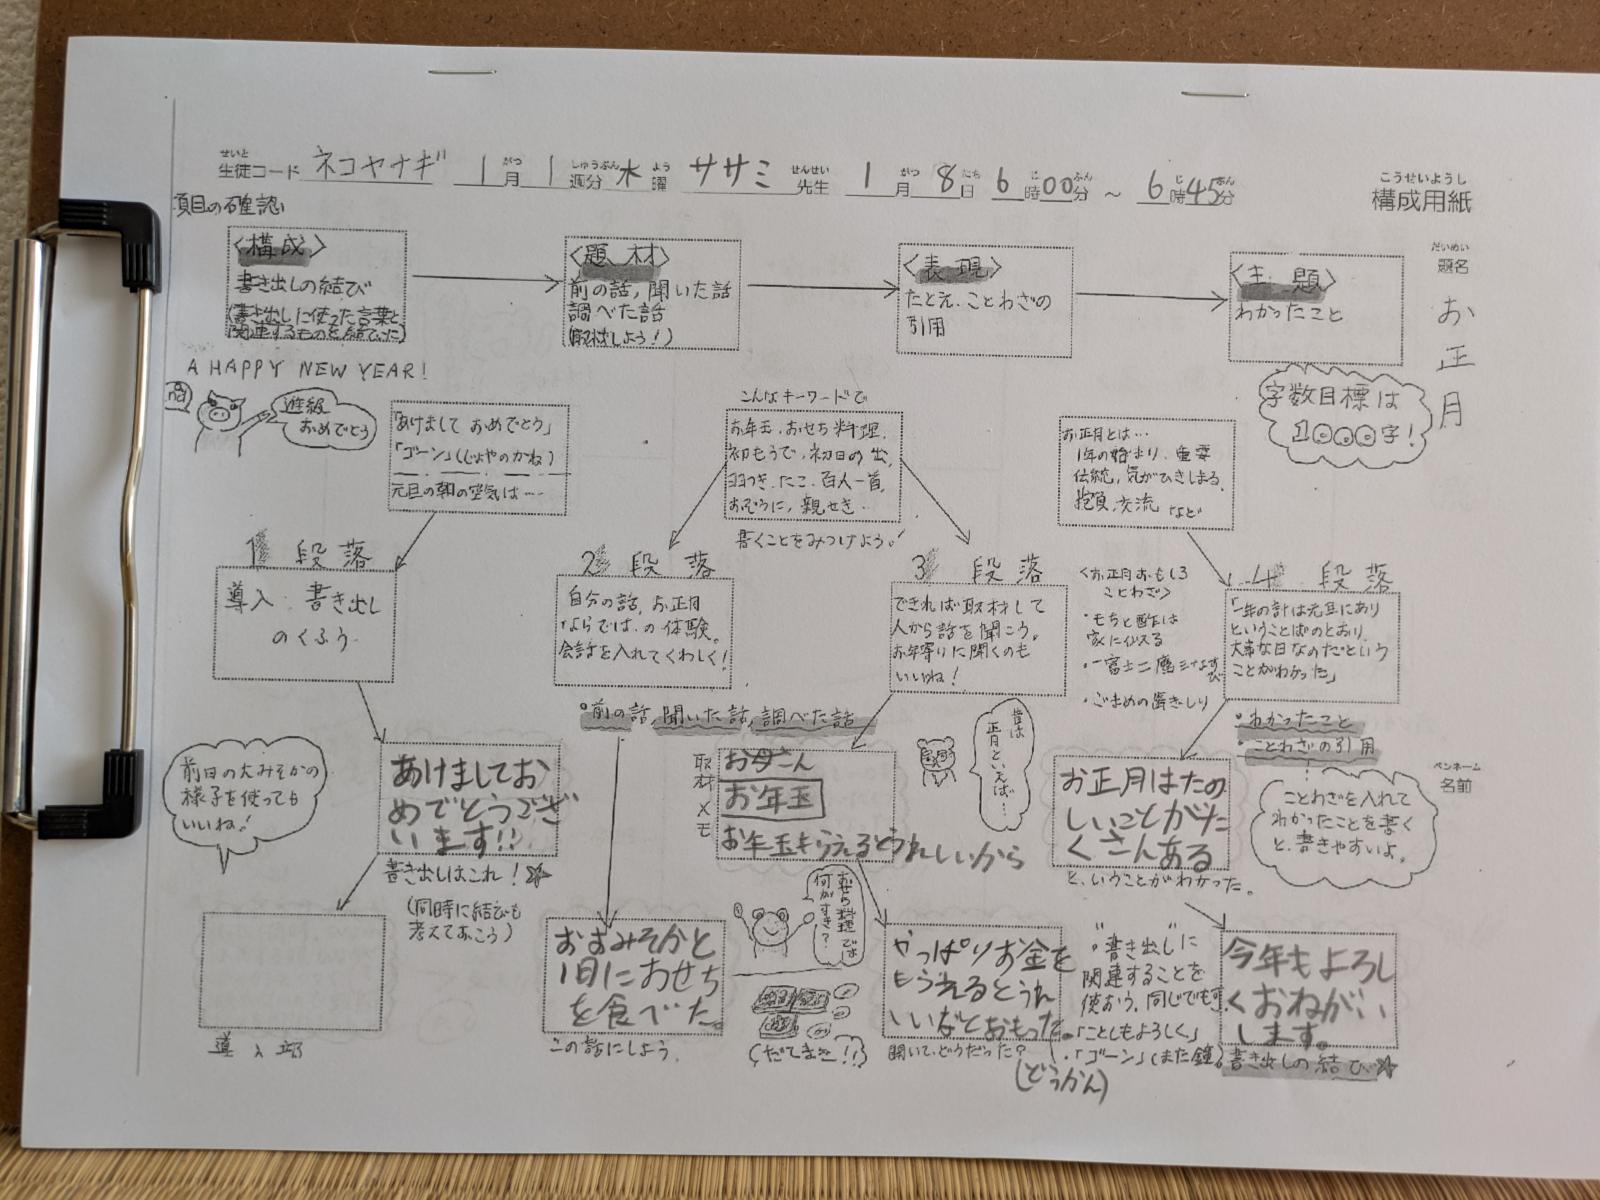 せいと
生徒コード ネコヤナギ 1月 1週分 水曜 ササミ先生 1月8日 6時00分 ～ 6時45分
がつ しゅうぶん よう せんせい がつ にち じ ふん じ ふん
こうせいようし
構成用紙
項目の確認
〈構成〉
書き出しの結び
(書き出しに使った言葉と
関連するものを結ていた)
〈題材〉
前の話,聞いた話
調べた話
(取材しよう!)
〈表現〉
たとえ.ことわざの
引用
〈主題〉
わかったこと
だいめい
題名
お正月
A HAPPY NEW YEAR!
進級
おめでとう
「あけまして おめでとう」
「ゴーン」(じょやのかね)
元旦の朝の空気は…
こんなキーワードで
お年玉.おせち料理.
初もうで,初日の出,
羽つき.たこ.百人一首.
おぞうに,親せき…
書くことをみつけよう!
お正月とは…
1年の始まり.重要
伝統,気がひきしまる.
抱負,交流 など
字数目標は
1000字!
1 段落
導入.書き出し
のくふう
2 段落
自分の話,お正月
ならでは.の体験。
会話を入れてくわしく!
3 段落
できれば取材して
人から話を聞こう。
お年寄りに聞くのも
いいね!
〈お正月おもしろ
ことわざ〉
・もちと酢は
家に似る
・一富士二鷹三なすび
・ごまめの歯ぎしり
4 段落
「一年の計は元旦にあり
ということばのとおり
大事な日なのだという
ことがわかった」
・わかったこと
・ことわざの引用
。前の話,聞いた話,調べた話
前日の大みそかの
様子を使っても
いいね!
あけましてお
めでとうござ
います!!
書き出しはこれ!☆
(同時に結びも
考えておこう)
取材メモ
お母さん
お年玉
お年玉もらえるとうれしいから
昔は
正月といえば…
お正月はたの
しいことがた
くさんある
と,いうことがわかった。
ペンネーム
名前
ことわざを入れて
わかったことを書く
と,書きやすいよ。
導入部
おおみそかと
1日におせち
を食べた。
この話にしよう.
おせち料理では
何がすき?
(だてまき!!)
やっぱりお金を
もらえるとうれし
いいなとおもった。
聞いて,どうだった?
(どうかん)
"書き出し"に
関連することを
使おう,同じでも可.
・「ことしもよろしく」
・「ゴーン」(また鐘)
今年もよろし
くおねがい
します。
書き出しの結び☆